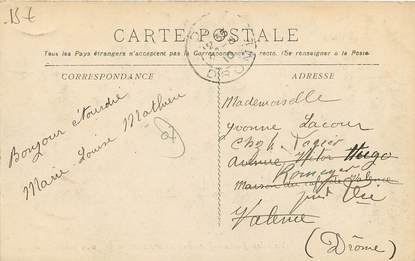 157
CARTE POSTALE
Tous les Pays étrangers n'acceptent pas la Correspondance au recto. (Se renseigner à la Poste)
CORRESPONDANCE
ADRESSE
Bonjour étourdie
Marie-Louise Mathieu
Mademoiselle
Yvonne Lacour
Chez
Avenue Victor Hugo
Romeyer
Maison du Valence
près Die
Valence
(Drôme)
DROME